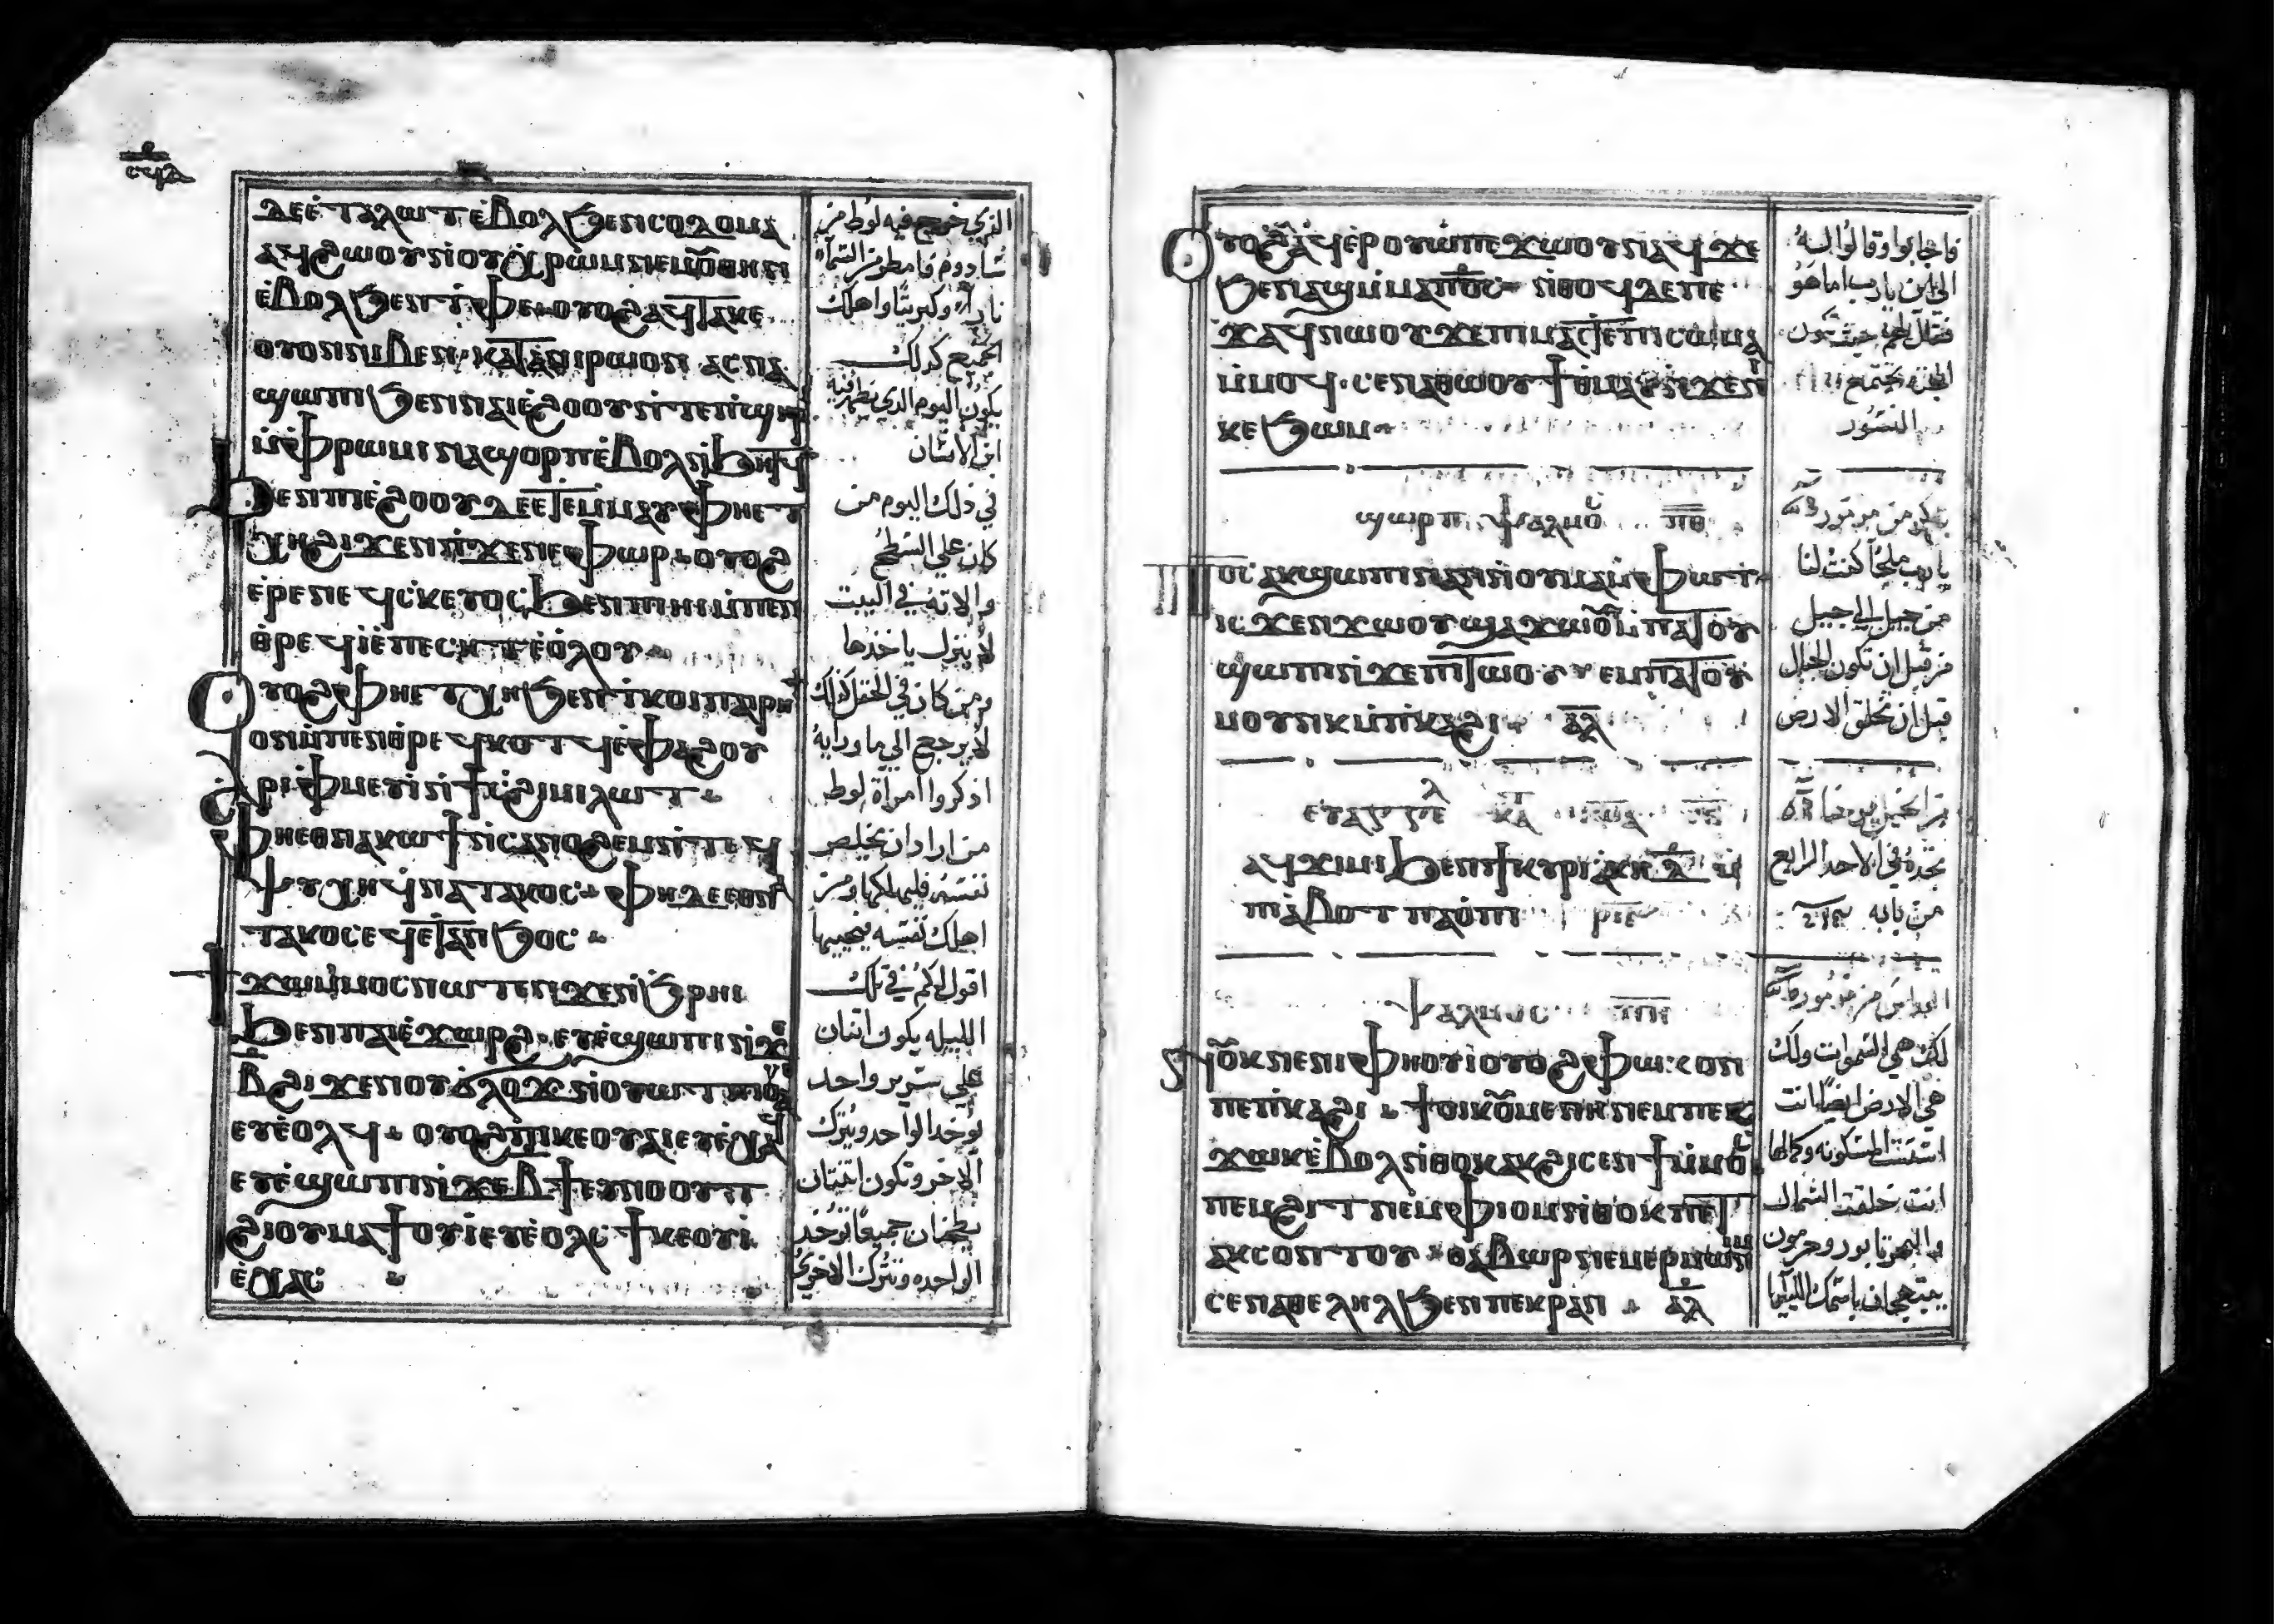 ⲇⲉ ⲉ̀ⲧⲁ ⲗⲱⲧ ⲉ̀ⲃⲟⲗ ϧⲉⲛ ⲥⲟⲇⲟⲙⲁ
ⲁϥϩⲱⲟⲩ ⲛ̀ⲟⲩⲭ̀ⲣⲱⲙ ⲛⲉⲙ ⲟⲩⲑⲏⲛ
ⲉ̀ⲃⲟⲗ ϧⲉⲛ ⲧ̀ⲫⲉ ⲟⲩⲟϩ ⲁϥⲧⲁⲕⲉ
ⲟⲩⲟⲛ ⲛⲓⲃⲉⲛ ⲕⲁⲧⲁ ⲡⲁⲓⲣⲏϯ ⲟⲛ ⲁⲥⲛⲁ
ϣⲱⲡⲓ ϧⲉⲛ ⲡⲓⲉ̀ϩⲟⲟⲩ ⲛ̀ⲧⲉ ⲡ̀ϣⲏⲣⲓ
ⲙ̀ⲫ̀ⲣⲱⲙⲓ ⲛⲁϭⲱⲣⲡ ⲉ̀ⲃⲟⲗ ⲛ̀ϧⲏⲧϥ
ϧⲉⲛ ⲡⲓⲉ̀ϩⲟⲟⲩ ⲇⲉ ⲉ̀ⲧⲉⲙⲙⲁⲩ ⲫⲏ ⲉⲧ
ⲭⲏ ϩⲓϫⲉⲛ ⲡ̀ϫⲉⲛⲉⲫⲱⲣ ⲟⲩⲟϩ
ⲉ̀ⲣⲉ ⲛⲉϥⲥ̀ⲕⲉⲩⲟⲥ ϧⲉⲛ ⲡⲓⲏⲓ ⲙ̀ⲡⲉⲛ
ⲑ̀ⲣⲉϥⲓ̀ ⲉ̀ⲡⲉⲥⲏⲧ ⲉ̀ⲟ̀ⲗⲟⲩ
ⲟⲩⲟϩ ⲫⲏ ⲉⲧⲭⲏ ϧⲉⲛ ⲧ̀ⲕⲟⲓ ⲡⲁⲓⲣⲏϯ
ⲟⲛ ⲙ̀ⲡⲉⲛⲑ̀ⲣⲉϥⲕⲟⲧϥ ⲉ̀ⲫⲁϩⲟⲩ
ⲁ̀ⲣⲓⲫ̀ⲙⲉⲩⲓ̀ ⲛ̀ϯⲥ̀ϩⲓⲙⲓ ⲗⲱⲧ
ⲫⲏ ⲉⲑⲛⲁⲕⲱϯ ⲛ̀ⲥⲁ ⲛⲟϩⲉⲙ ⲛ̀ⲧⲉϥ
ⲯⲩⲭⲏ ϥ̀ⲛⲁⲧⲁⲕⲟⲥ ⲫⲏ ⲇⲉ ⲉⲑⲛⲁ
ⲧⲁⲕⲟⲥ ⲉϥⲉ̀ⲧⲁⲛϧⲟⲥ
ϯϫⲱ ⲙ̀ⲙⲟⲥ ⲛⲱⲧⲉⲛ ϫⲉ ⲛ̀ϩ̀ⲣⲏⲓ
ϧⲉⲛ ⲡⲁⲓⲉ̀ϫⲱⲣϩ ⲉⲩⲉ̀ϣⲱⲡⲓ ⲛ̀ϫⲉ
ⲃ̅ ϩⲓϫⲉⲛ ⲟⲩϭ̀ⲗⲟϫ ⲛ̀ⲟⲩⲱⲧ ⲡⲓⲟⲩⲁⲓ
ⲉⲩⲉ̀ⲟⲗϥ ⲟⲩⲟϩ ⲡⲓⲕⲉⲟⲩⲁⲓ ⲉⲩⲉ̀ⲭⲁϥ
ⲉⲩⲉ̀ϣⲱⲡⲓ ⲛ̀ϫⲉ ⲃ̅ϯ ⲉⲩⲛⲟⲩⲧ
ϩⲓ ⲟⲩⲙⲁ ϯⲟⲩⲓ̀ ⲉⲩⲉ̀ⲟⲗⲥ ϯⲕⲉⲟⲩⲓ̀
ⲉ̀ⲭⲁⲥ
الذي خرج فيه لوط من
سادوم فامطر من السماء
نارا وكبريتا واهلك
الجميع كذلك
يكون اليوم الذي يظهر فيه
ابن الانسان
في ذلك اليوم من
كان علي السطح
والاته في البيت
لا ينزل ياخذها
ومن كان في الحقل كذلك
لا يرجع الي ما ورايه
اذكروا امراة لوط
من اراد ان يخلص
نفسه فليهلكها ومن
اهلك نفسه فيحييها
اقول لكم في تلك
الليله يكون اتنان
علي سرير واحد
يوخد الواحد ويترك
الاخر وتكون اتنتان
يطحنان جميعا توخد
الواحده وتترك الاخري
ⲟⲩⲟϩ ⲁϥⲉ̀ⲣⲟⲩⲱ̀ ⲡⲉϫⲱⲟⲩ ⲛⲁϥ ϫⲉ
ϧⲉⲛ ⲁϣ ⲙ̀ⲙⲁ ⲡ⳪ ⲛ̀ⲑⲟϥ ⲇⲉ ⲡⲉ
ϫⲁϥ ⲛⲱⲟⲩ ϫⲉ ⲡⲓⲙⲁ ⲉ̀ⲧⲉ ⲡⲓⲥⲱⲙⲁ
ⲙ̀ⲙⲟϥ ⲥⲉⲛⲁⲑⲱⲟⲩϯ ⲉ̀ⲙⲁⲩ ⲛ̀ϫⲉ ⲛⲓ
ⲕⲉϧⲱⲙ
ϣⲱⲣⲡ ⲯⲁⲗⲙⲟⲥ ⲡ̅ⲑ̅
ⲡ⳪ ⲁⲕϣⲱⲡⲓ ⲛⲁⲛ ⲛ̀ⲟⲩⲙⲁⲙ̀ⲫⲱⲧ
ⲓⲥϫⲉⲛ ϫⲱⲟⲩ ϣⲁ ϫⲱⲟⲩ ⲙ̀ⲡⲁⲧⲟⲩ
ϣⲱⲡⲓ ⲛ̀ϫⲉ ⲛⲓⲧⲱⲟⲩ ⲉⲙⲡⲁⲧⲟⲩ
ⲙⲟⲩⲛⲕ ⲙ̀ⲡ̀ⲕⲁϩⲓ ⲁ̅ⲗ̅
ⲉⲩⲁⲅⲅⲉⲗ
ⲁϥϫⲓⲙⲓ ϧⲉⲛ ϯⲕⲩⲣⲓⲁⲕⲏ ⲇ̅ ⲙ̀
ⲡⲓⲁ̀ⲃⲟⲧ ⲡⲁⲟ̀ⲡⲓ ⲣⲓⲉ
ⲯⲁⲗⲙⲟⲥ ⲡ̅ⲏ̅
ⲛⲟⲩⲕ ⲛⲉ ⲛⲓⲫⲏⲟⲩⲓ̀ ⲟⲩⲟϩ ⲫⲱⲕ ⲟⲛ
ⲡⲉ ⲡ̀ⲕⲁϩⲓ ϯⲟⲓⲕⲟⲩⲙⲉⲛⲏ ⲛⲉⲙ ⲡⲉⲥ
ϫⲱⲕ ⲉ̀ⲃⲟⲗ ⲛ̀ⲑⲟⲕ ⲁⲕϩⲓⲥⲉⲛϯ ⲙ̀ⲙⲟⲩ
ⲡⲉⲙϩⲓⲧ ⲛⲉⲙ ⲫ̀ⲓⲟⲙ ⲛ̀ⲑⲟⲕ ⲡⲉⲧ
ⲁⲕⲥⲟⲛⲧⲟⲩ ⲑⲁⲃⲱⲣ ⲛⲉⲙ ⲉⲣⲙⲱⲛ
ⲥⲉⲛⲁⲑⲉⲗⲏⲗ ϧⲉⲛ ⲡⲉⲕⲣⲁⲛ ⲁ̅ⲗ̅
فاجابوا وقالوا له
الي اين يارب اما هو
فقال لهم حيث تكون
الجثه تجتمع
النسور
باكر من مزمور
يارب ملجآ كنت لنا
من جيل الي جيل
من قبل ان تكون الجبال
قبل ان تخلق الارض
تجده في الاحد الرابع
من بابه
القداس من مزمور
لك هي السموات ولك
هي الارض ايضا انت
اسست المسكونه وكمالها
انت خلقت الشمال
والبحر تابور وحرمون
يبتهجان باسمك الليلويا